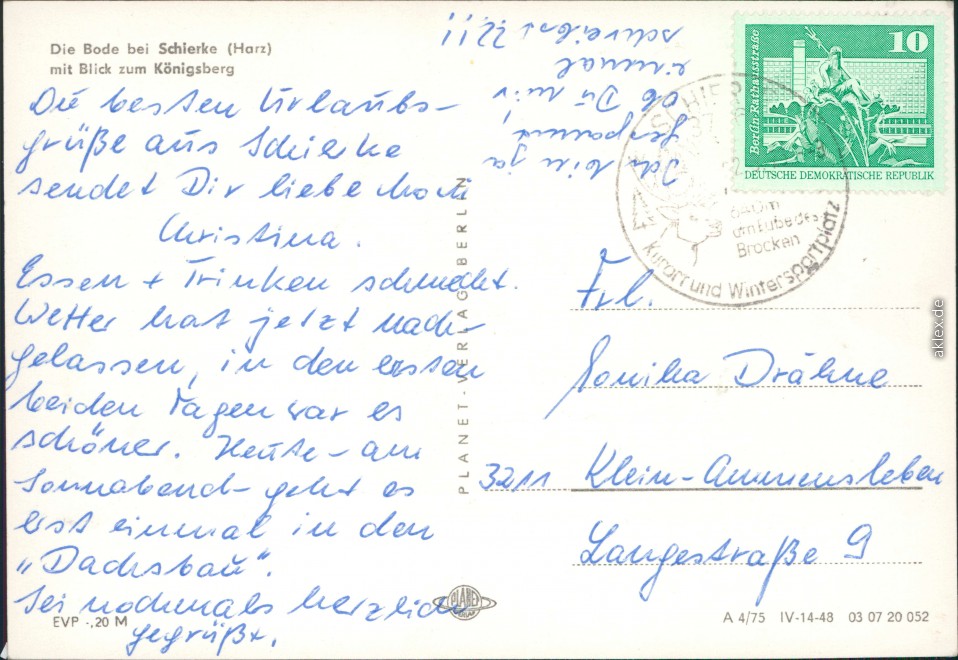 Die Bode bei Schierke (Harz)
mit Blick zum Königsberg
Die besten Urlaubs-
grüße aus Schierke
sendet Dir liebe Moni
Christina.
Essen + Trinken schmeckt.
Wetter hat jetzt nach-
gelassen, in den ersten
beiden Tagen war es
schöner. Heute – am
Sonnabend – geht es
erst einmal in den
„Dachsbau“.
Sei nochmals herzlich
gegrüßt.
EVP -,20 M
Ich bin ja
gespannt,
ob Du mir
einmal
schreibst ?!!
PLANET-VERLAG BERLIN
PLANET
10
Berlin·Rathausstraße
DEUTSCHE DEMOKRATISCHE REPUBLIK
SCHIER
640m
am Fuße des
Brocken
Kurort und Wintersportplatz
Frl.
Monika Drähne
3211 Klein-Ammensleben
Langestraße 9
A 4/75 IV-14-48 03 07 20 052
aklex.de